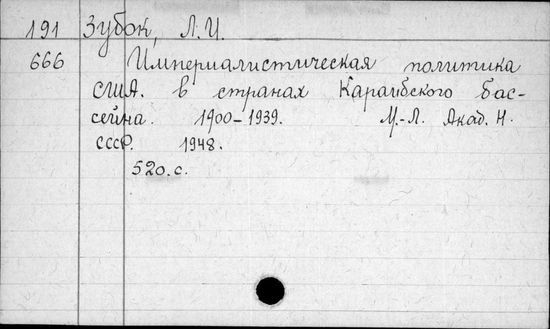 191 Зубок, Л.И.
666 Империалистическая политика
США. в странах Караибского бас-
сейна. 1900-1939. М.-Л. Акад. Н.
СССР. 1948.
520.с.